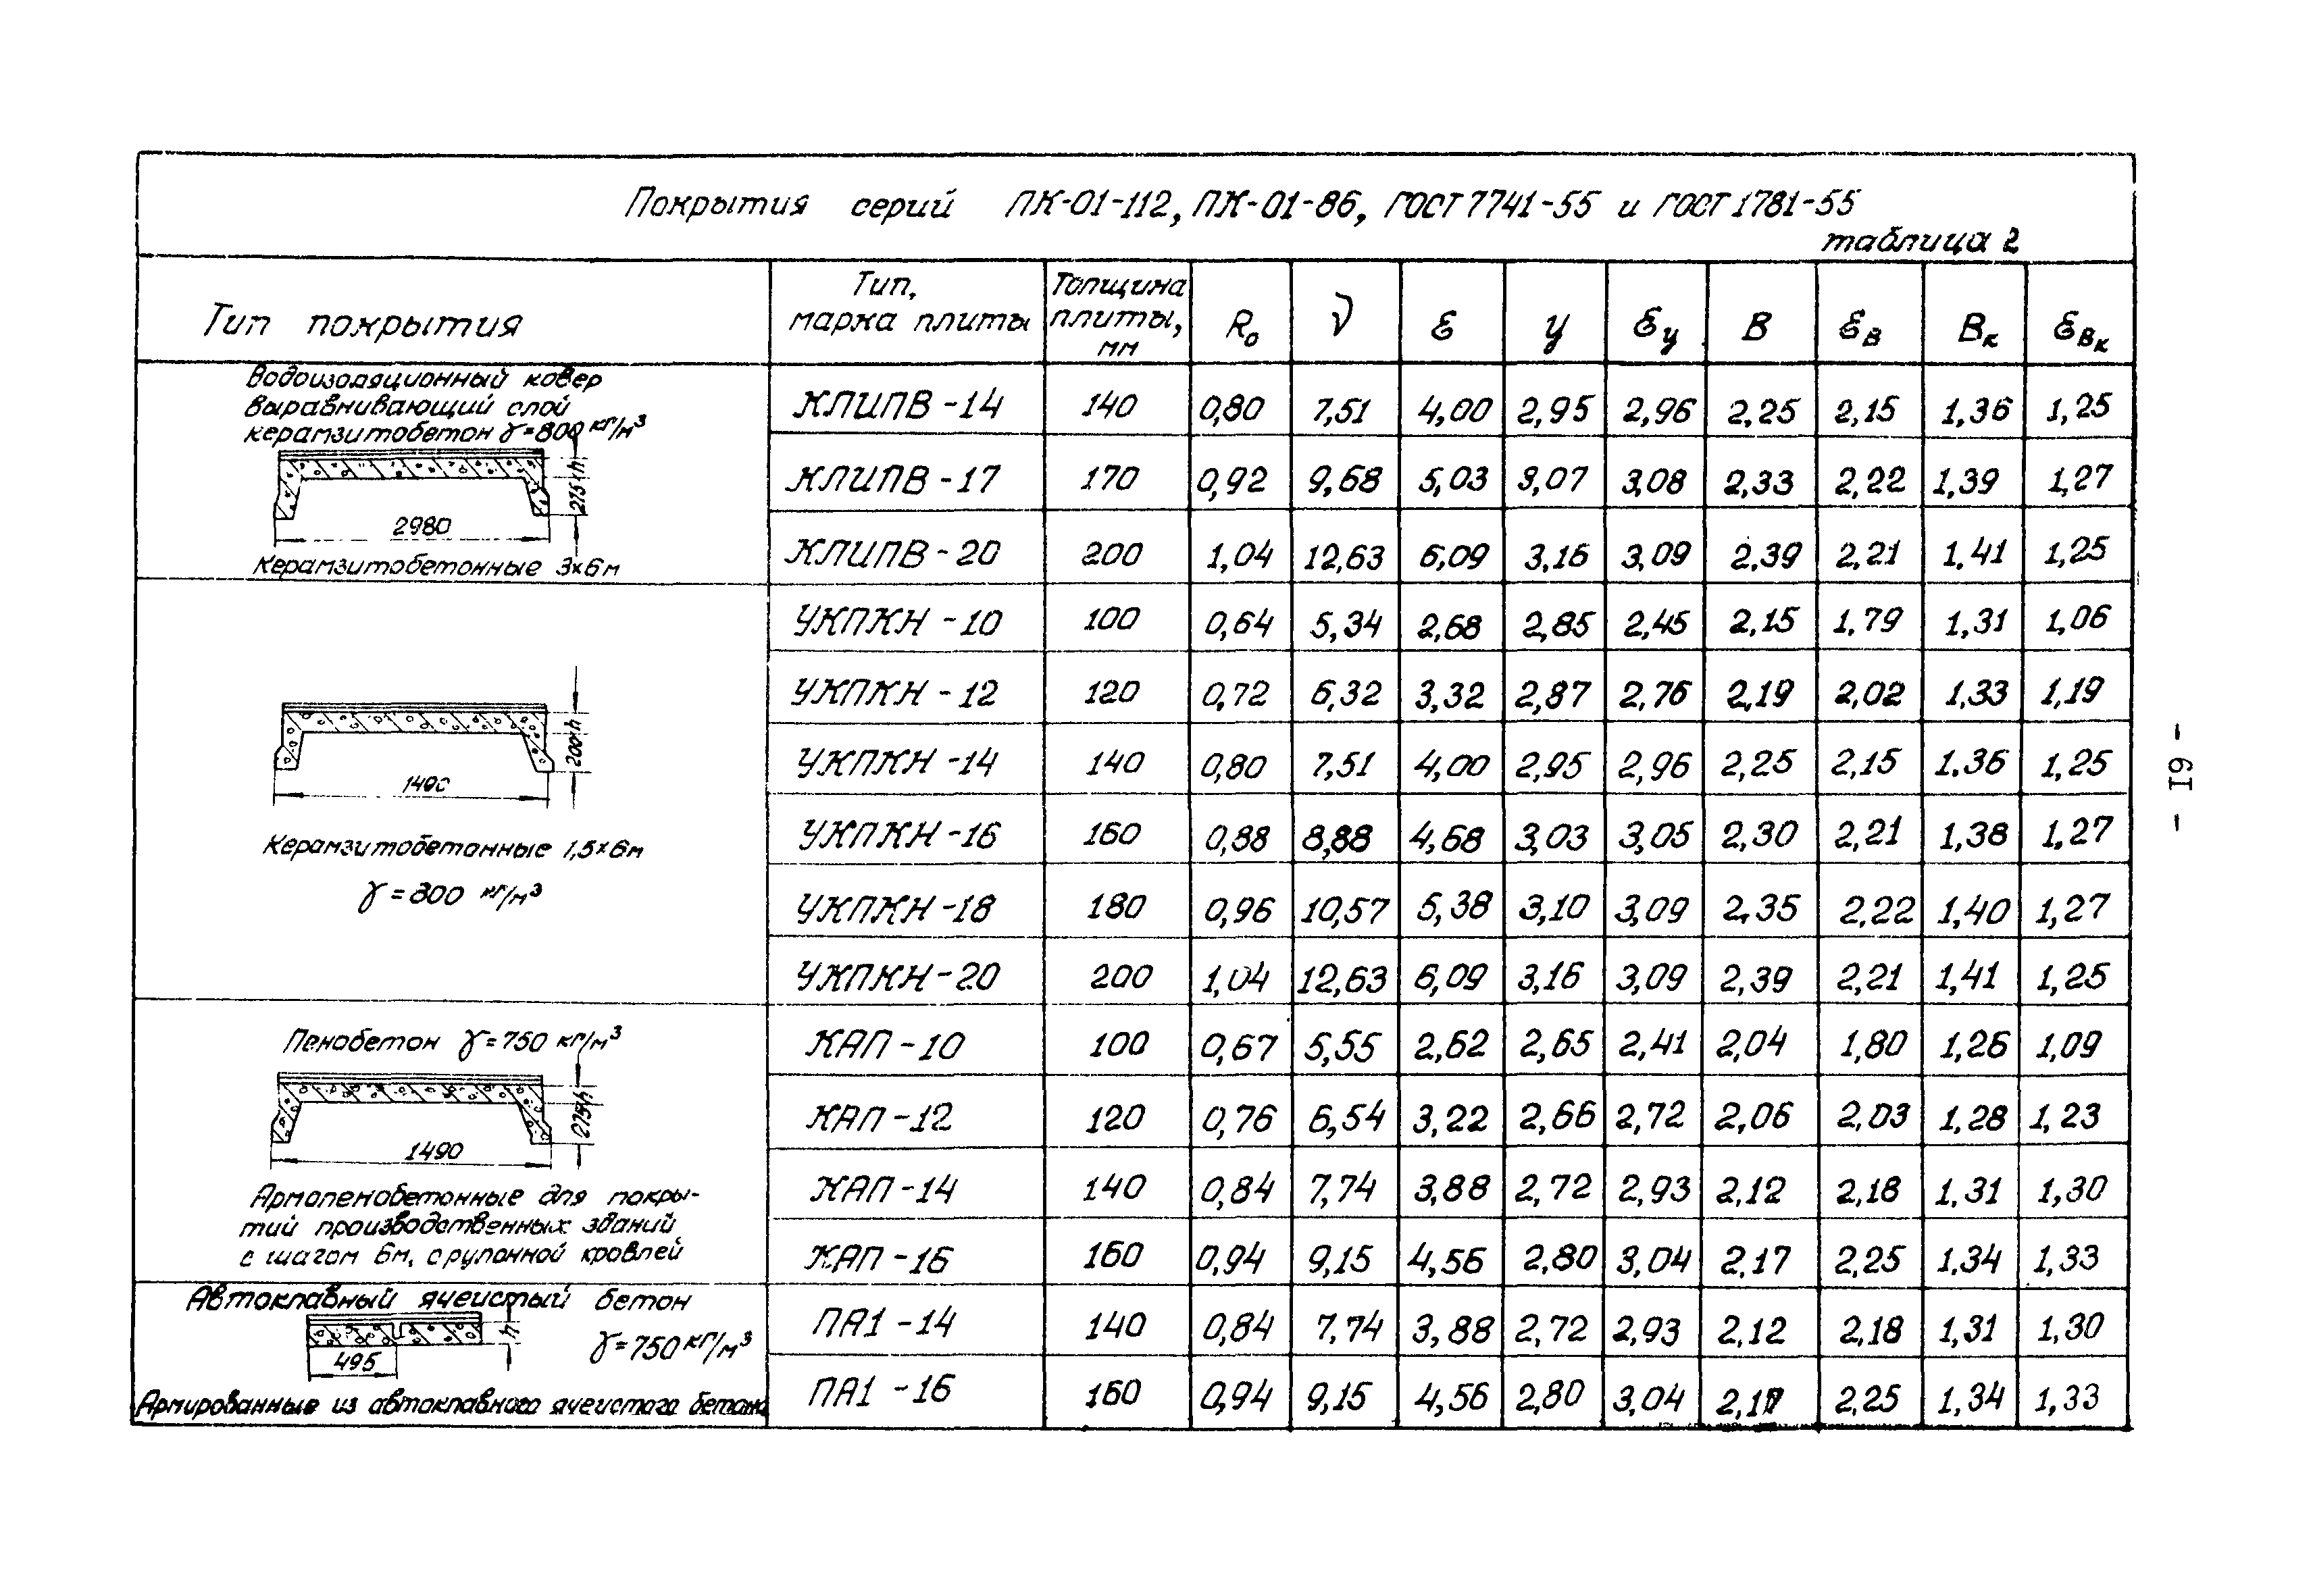 Покрытия серий ПК-01-112, ПК-01-86, ГОСТ 7741-55 и ГОСТ 1781-55
таблица 2
Тип покрытия
Тип, марка плиты
Толщина плиты, мм
R₀ ν ε У εу В εВ Вк εВк
Водоизоляционный ковер
выравнивающий слой
керамзитобетон γ=800 кг/м³
275+h
2980
Керамзитобетонные 3×6м
КЛИПВ-14 140 0,80 7,51 4,00 2,95 2,96 2,25 2,15 1,36 1,25
КЛИПВ-17 170 0,92 9,68 5,03 3,07 3,08 2,33 2,22 1,39 1,27
КЛИПВ-20 200 1,04 12,63 6,09 3,16 3,09 2,39 2,21 1,41 1,25
200+h
1490
Керамзитобетонные 1,5×6м
γ=800 кг/м³
УКПКН-10 100 0,64 5,34 2,68 2,85 2,45 2,15 1,79 1,31 1,06
УКПКН-12 120 0,72 6,32 3,32 2,87 2,76 2,19 2,02 1,33 1,19
УКПКН-14 140 0,80 7,51 4,00 2,95 2,96 2,25 2,15 1,36 1,25
УКПКН-16 160 0,88 8,88 4,68 3,03 3,05 2,30 2,21 1,38 1,27
УКПКН-18 180 0,96 10,57 5,38 3,10 3,09 2,35 2,22 1,40 1,27
УКПКН-20 200 1,04 12,63 6,09 3,16 3,09 2,39 2,21 1,41 1,25
Пенобетон γ=750 кг/м³
275+h
1490
Армопенобетонные для покры-
тий производственных зданий
с шагом 6м, с рулонной кровлей
КАП-10 100 0,67 5,55 2,62 2,65 2,41 2,04 1,80 1,26 1,09
КАП-12 120 0,76 6,54 3,22 2,66 2,72 2,06 2,03 1,28 1,23
КАП-14 140 0,84 7,74 3,88 2,72 2,93 2,12 2,18 1,31 1,30
КАП-16 160 0,94 9,15 4,56 2,80 3,04 2,17 2,25 1,34 1,33
Автоклавный ячеистый бетон
γ=750 кг/м³
h
495
Армированные из автоклавного ячеистого бетона
ПА1-14 140 0,84 7,74 3,88 2,72 2,93 2,12 2,18 1,31 1,30
ПА1-16 160 0,94 9,15 4,56 2,80 3,04 2,17 2,25 1,34 1,33
- 19 -